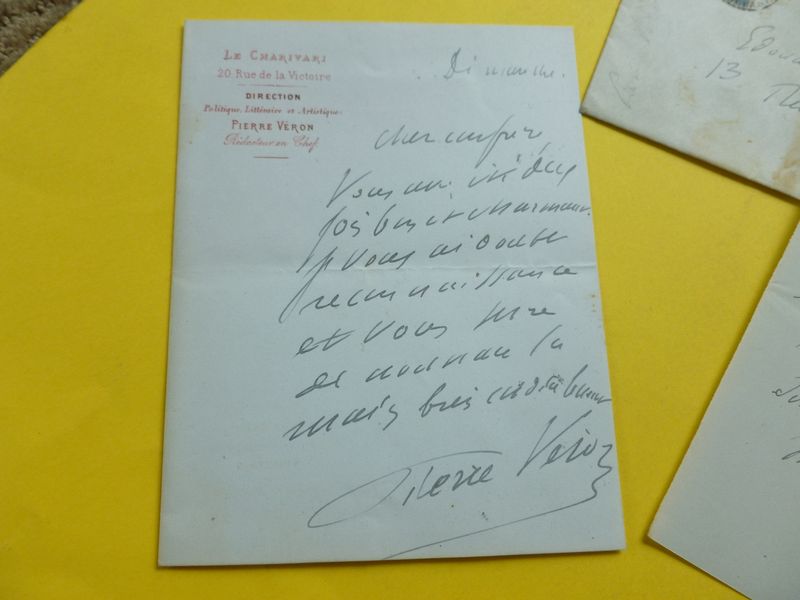 LE CHARIVARI
20, Rue de la Victoire
DIRECTION
Politique, Littéraire et Artistique
PIERRE VÉRON
Rédacteur en Chef
Dimanche.
Cher confrère
Vous avez été deux
fois bon et charmant.
Je vous ai double
reconnaissance
et vous serre
de nouveau la
main bien cordialement
Pierre Véron
13